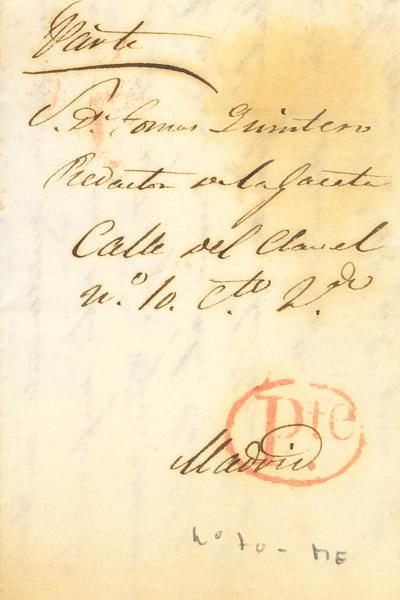 Parte
S. Dn. Tomas Quintero
Redactor de la Gaceta
Calle del Clavel
nº. 10. Cto. 2.do
Pte
Madrid